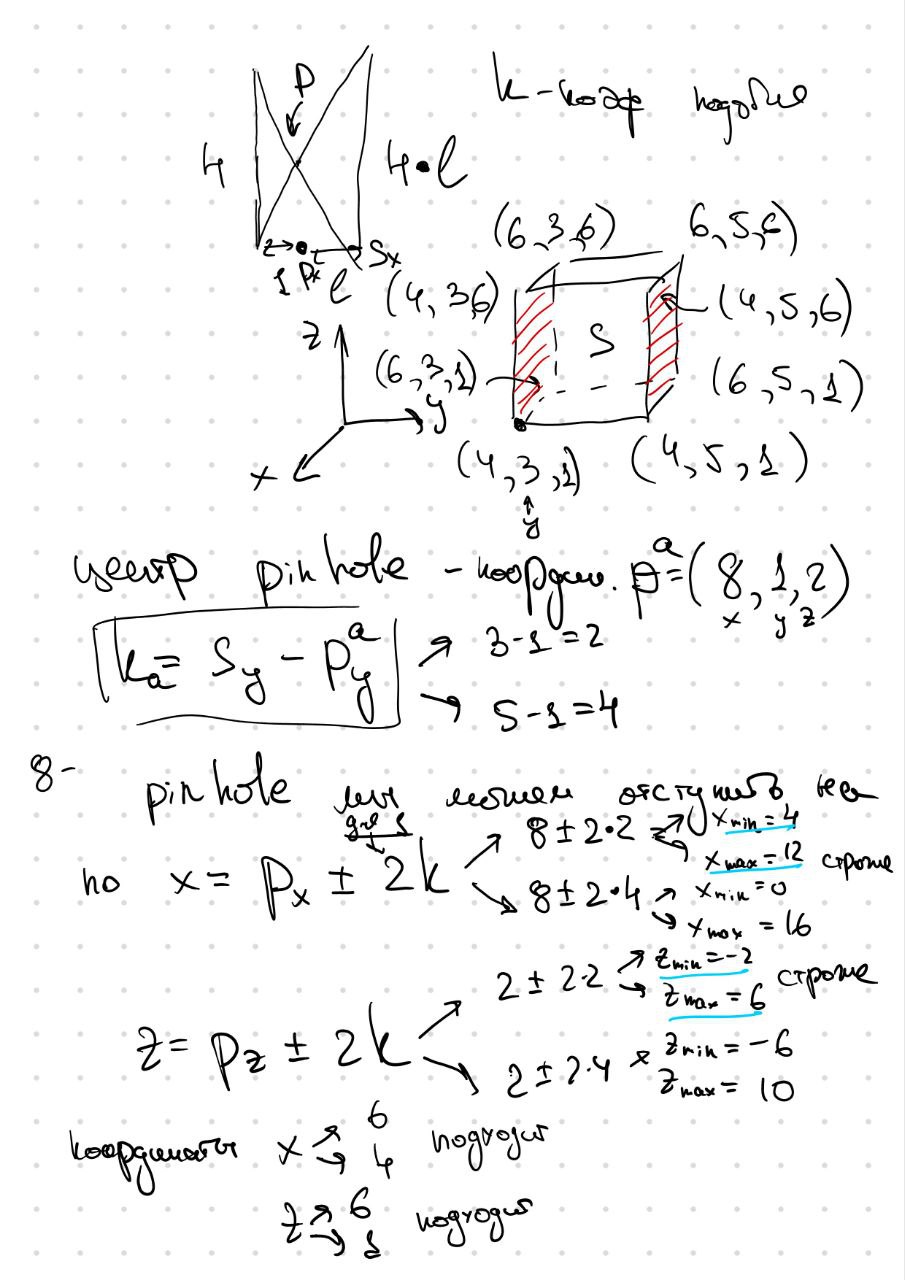 k - коэф подобия
P
4
4•l
z
1
Px
l
Sx
(6,3,6)
6,5,6)
(4,3,6)
(4,5,6)
z
S
(6,3,1)
(6,5,1)
y
x
(4,3,1)
(4,5,1)
y
центр pinhole - координ. pᵃ=(8,1,2)
x y z
kₐ= Sy - pᵃy
3-1=2
5-1=4
8-
pinhole мы можем отступить на
для 1
по x = px ± 2k
8±2•2
xmin=4
xmax=12 строже
8±2•4
xmin=0
xmax=16
z= pz ± 2k
2±2•2
zmin=-2
zmax=6 строже
2±2•4
zmin=-6
zmax=10
координаты x 6 4 подходят
z 6 1 подходят